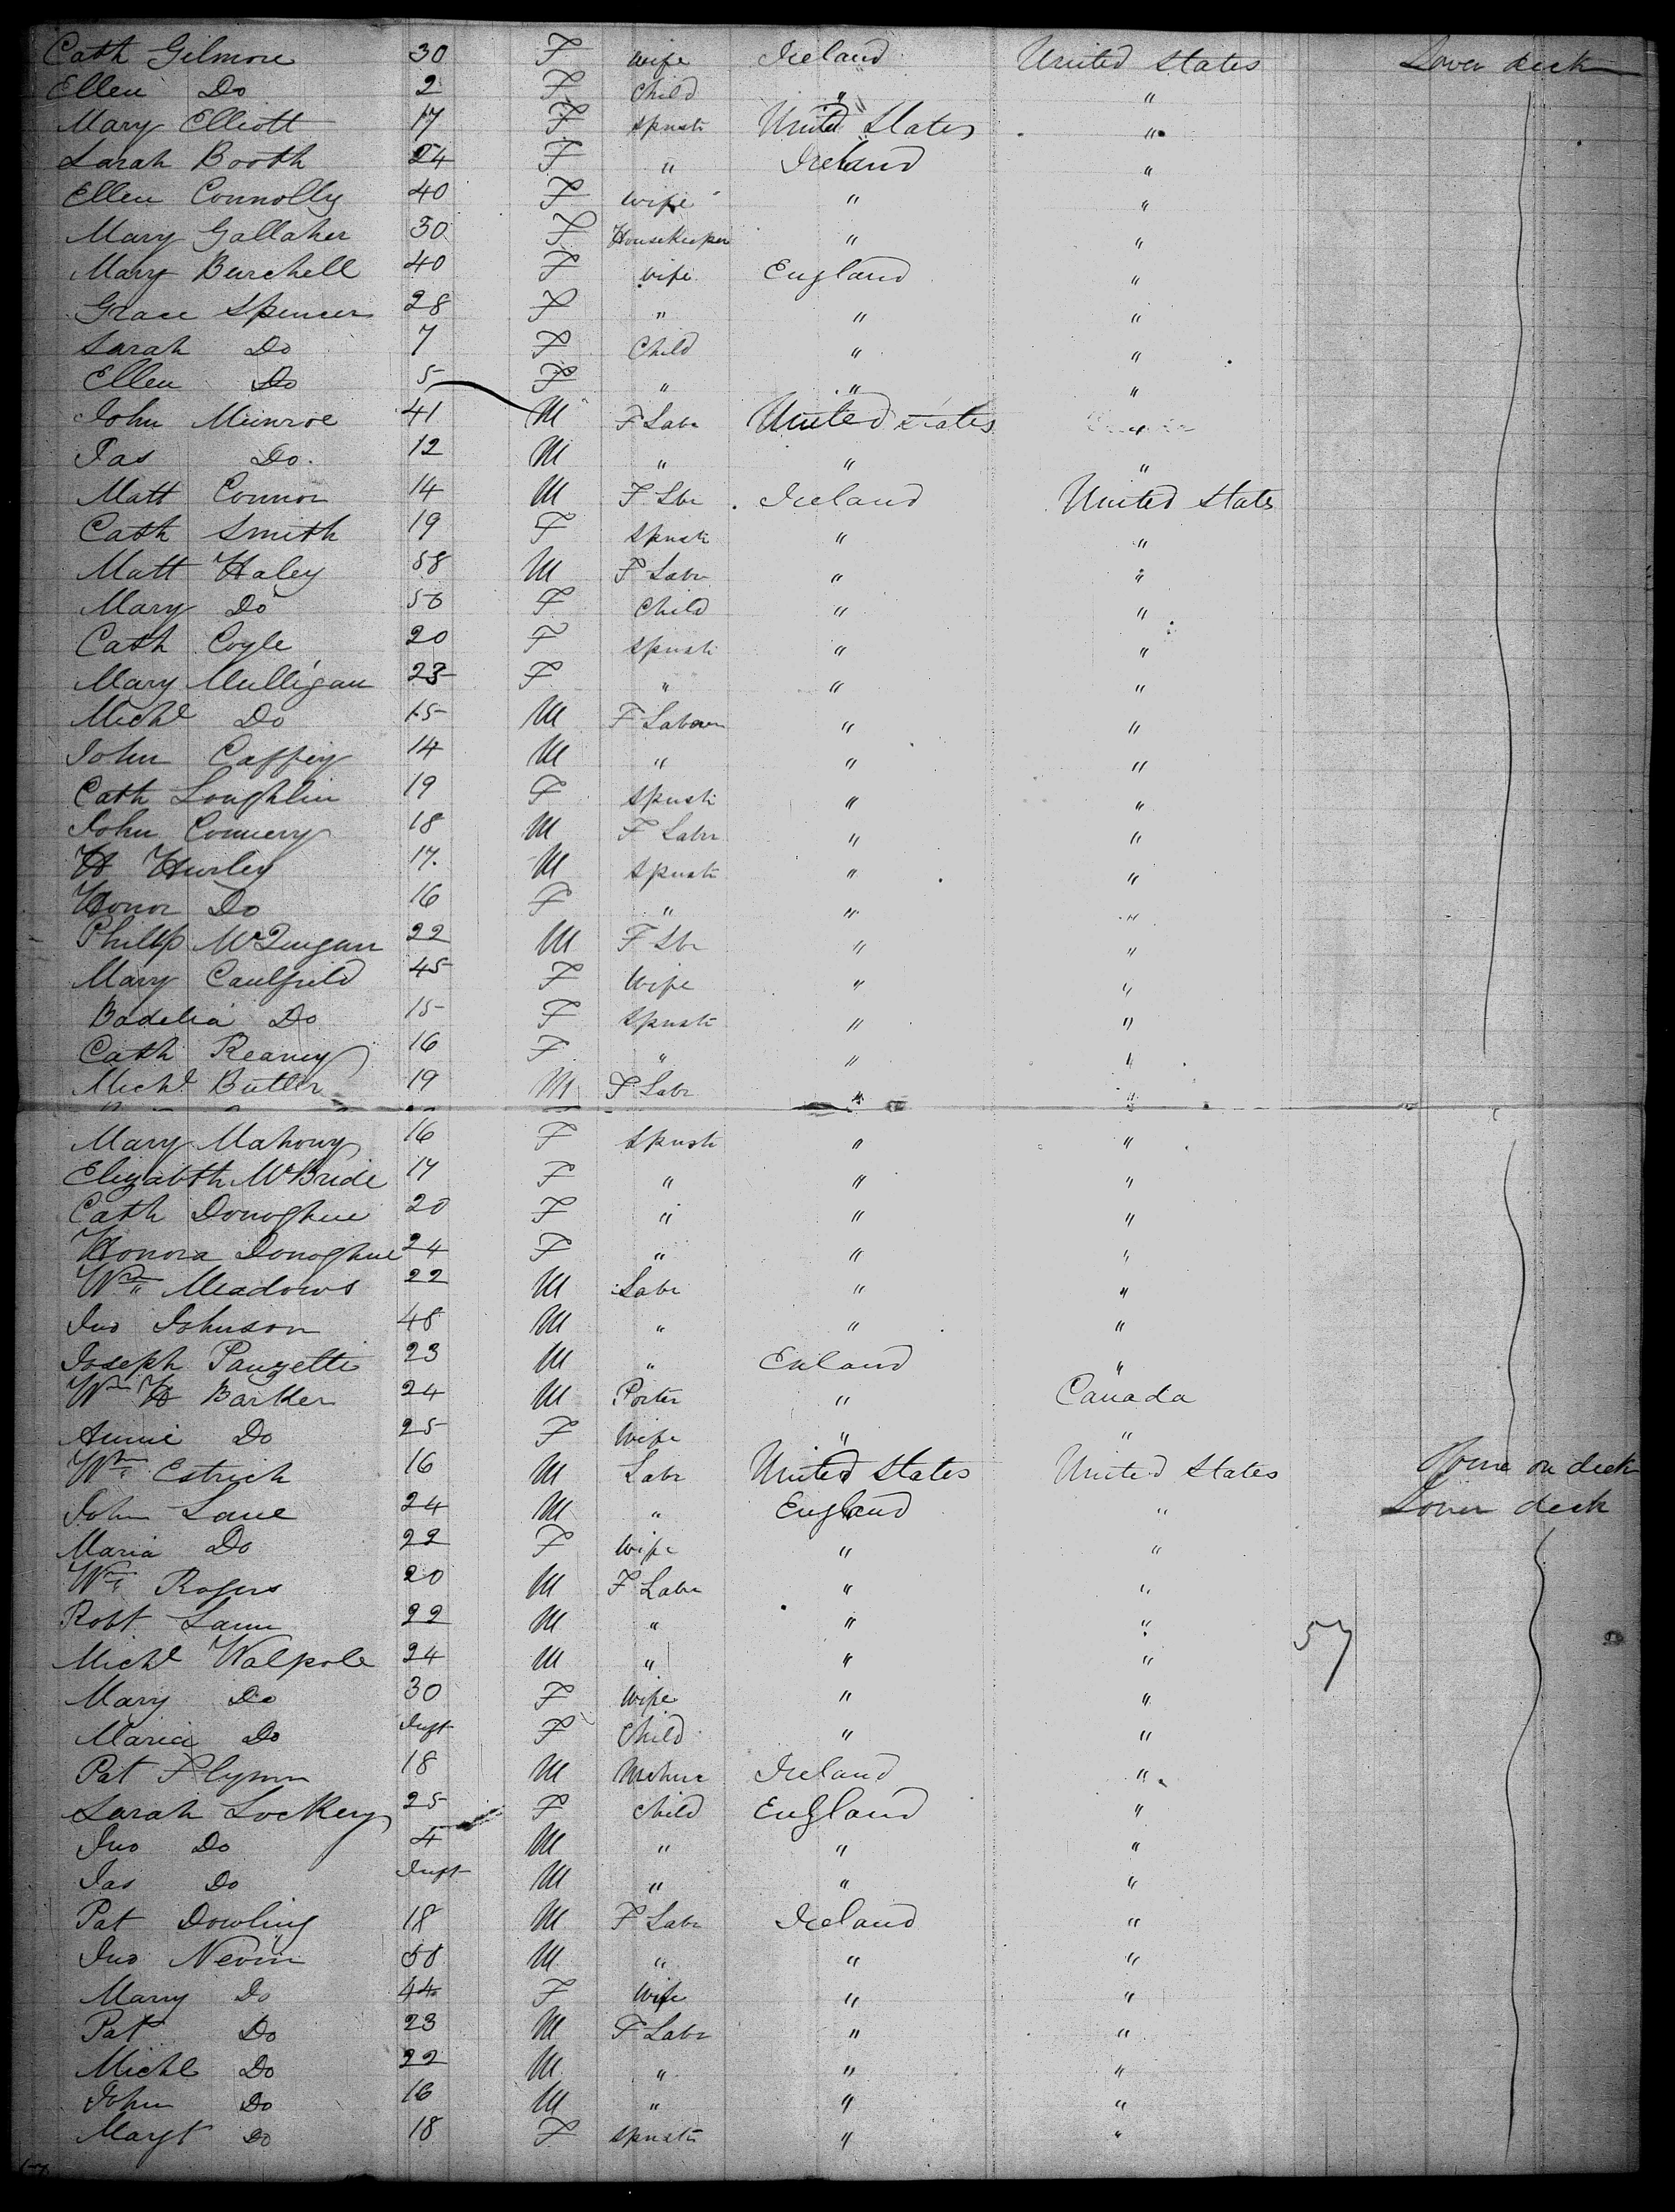 Cath Gilmore 30 F wife Ireland United States Lower deck
Ellen Do 2 F Child " "
Mary Elliott 17 F Spnstr United States "
Sarah Booth 24 F " Ireland "
Ellen Connolly 40 F wife " "
Mary Gallaher 30 F Housekeeper " "
Mary Burchell 40 F wife England "
Grace Spencer 28 F " " "
Sarah Do 7 F Child " "
Ellen Do 5 F " " "
John Munroe 41 M F Labr United States "
Jas Do 12 M " " "
Matt Connor 14 M F Lbr Ireland United States
Cath Smith 19 F Spnstr " "
Matt Haley 58 M F Labr " "
Mary Do 56 F Child " "
Cath Coyle 20 F Spnstr " "
Mary Mulligan 23 F " " "
Michl Do 15 M F Labour " "
John Caffey 14 M " " "
Cath Loughlin 19 F Spnstr " "
John Connery 18 M F Labr " "
H Hurley 17 M Spnstr " "
Honor Do 16 F " " "
Phillip 22 M F Lbr " "
Mary Caulfield 45 F Wife " "
Badelia Do 15 F Spnstr " "
Cath Reaney 16 F " " "
Michl Butler 19 M F Labr " "
Mary Mahony 16 F Spnstr " "
Elizabth McBride 17 F " " "
Cath Donoghue 20 F " " "
Honora Donoghue 24 F " " "
Wm Meadows 22 M Labr " "
Jno Johnson 48 M " " "
Joseph Pauzette 23 M " Enland "
Wm H Barker 24 M Porter " Canada
Annie Do 25 F Wife " "
Wm Estrich 16 M Labr United States United States on deck
John Lane 24 M " England " Lower deck
Maria Do 22 F Wife " "
Wm Rogers 20 M F Labr " "
Robt 22 M " " " 57
Michl Walpole 24 M " " "
Mary Do 30 F Wife " "
Maria Do Inft F Child " "
Pat Flynn 18 M Ireland "
Sarah Lockery 25 F Child England "
Jno Do 4 M " " "
Jas Do Inft M " " "
Pat Dowling 18 M F Labr Ireland "
Jno Nevin 58 M " " "
Mary Do 44 F Wife " "
Pat Do 23 M F Labr " "
Michl Do 22 M " " "
John Do 16 M " " "
Margt Do 18 F Spnstr " "